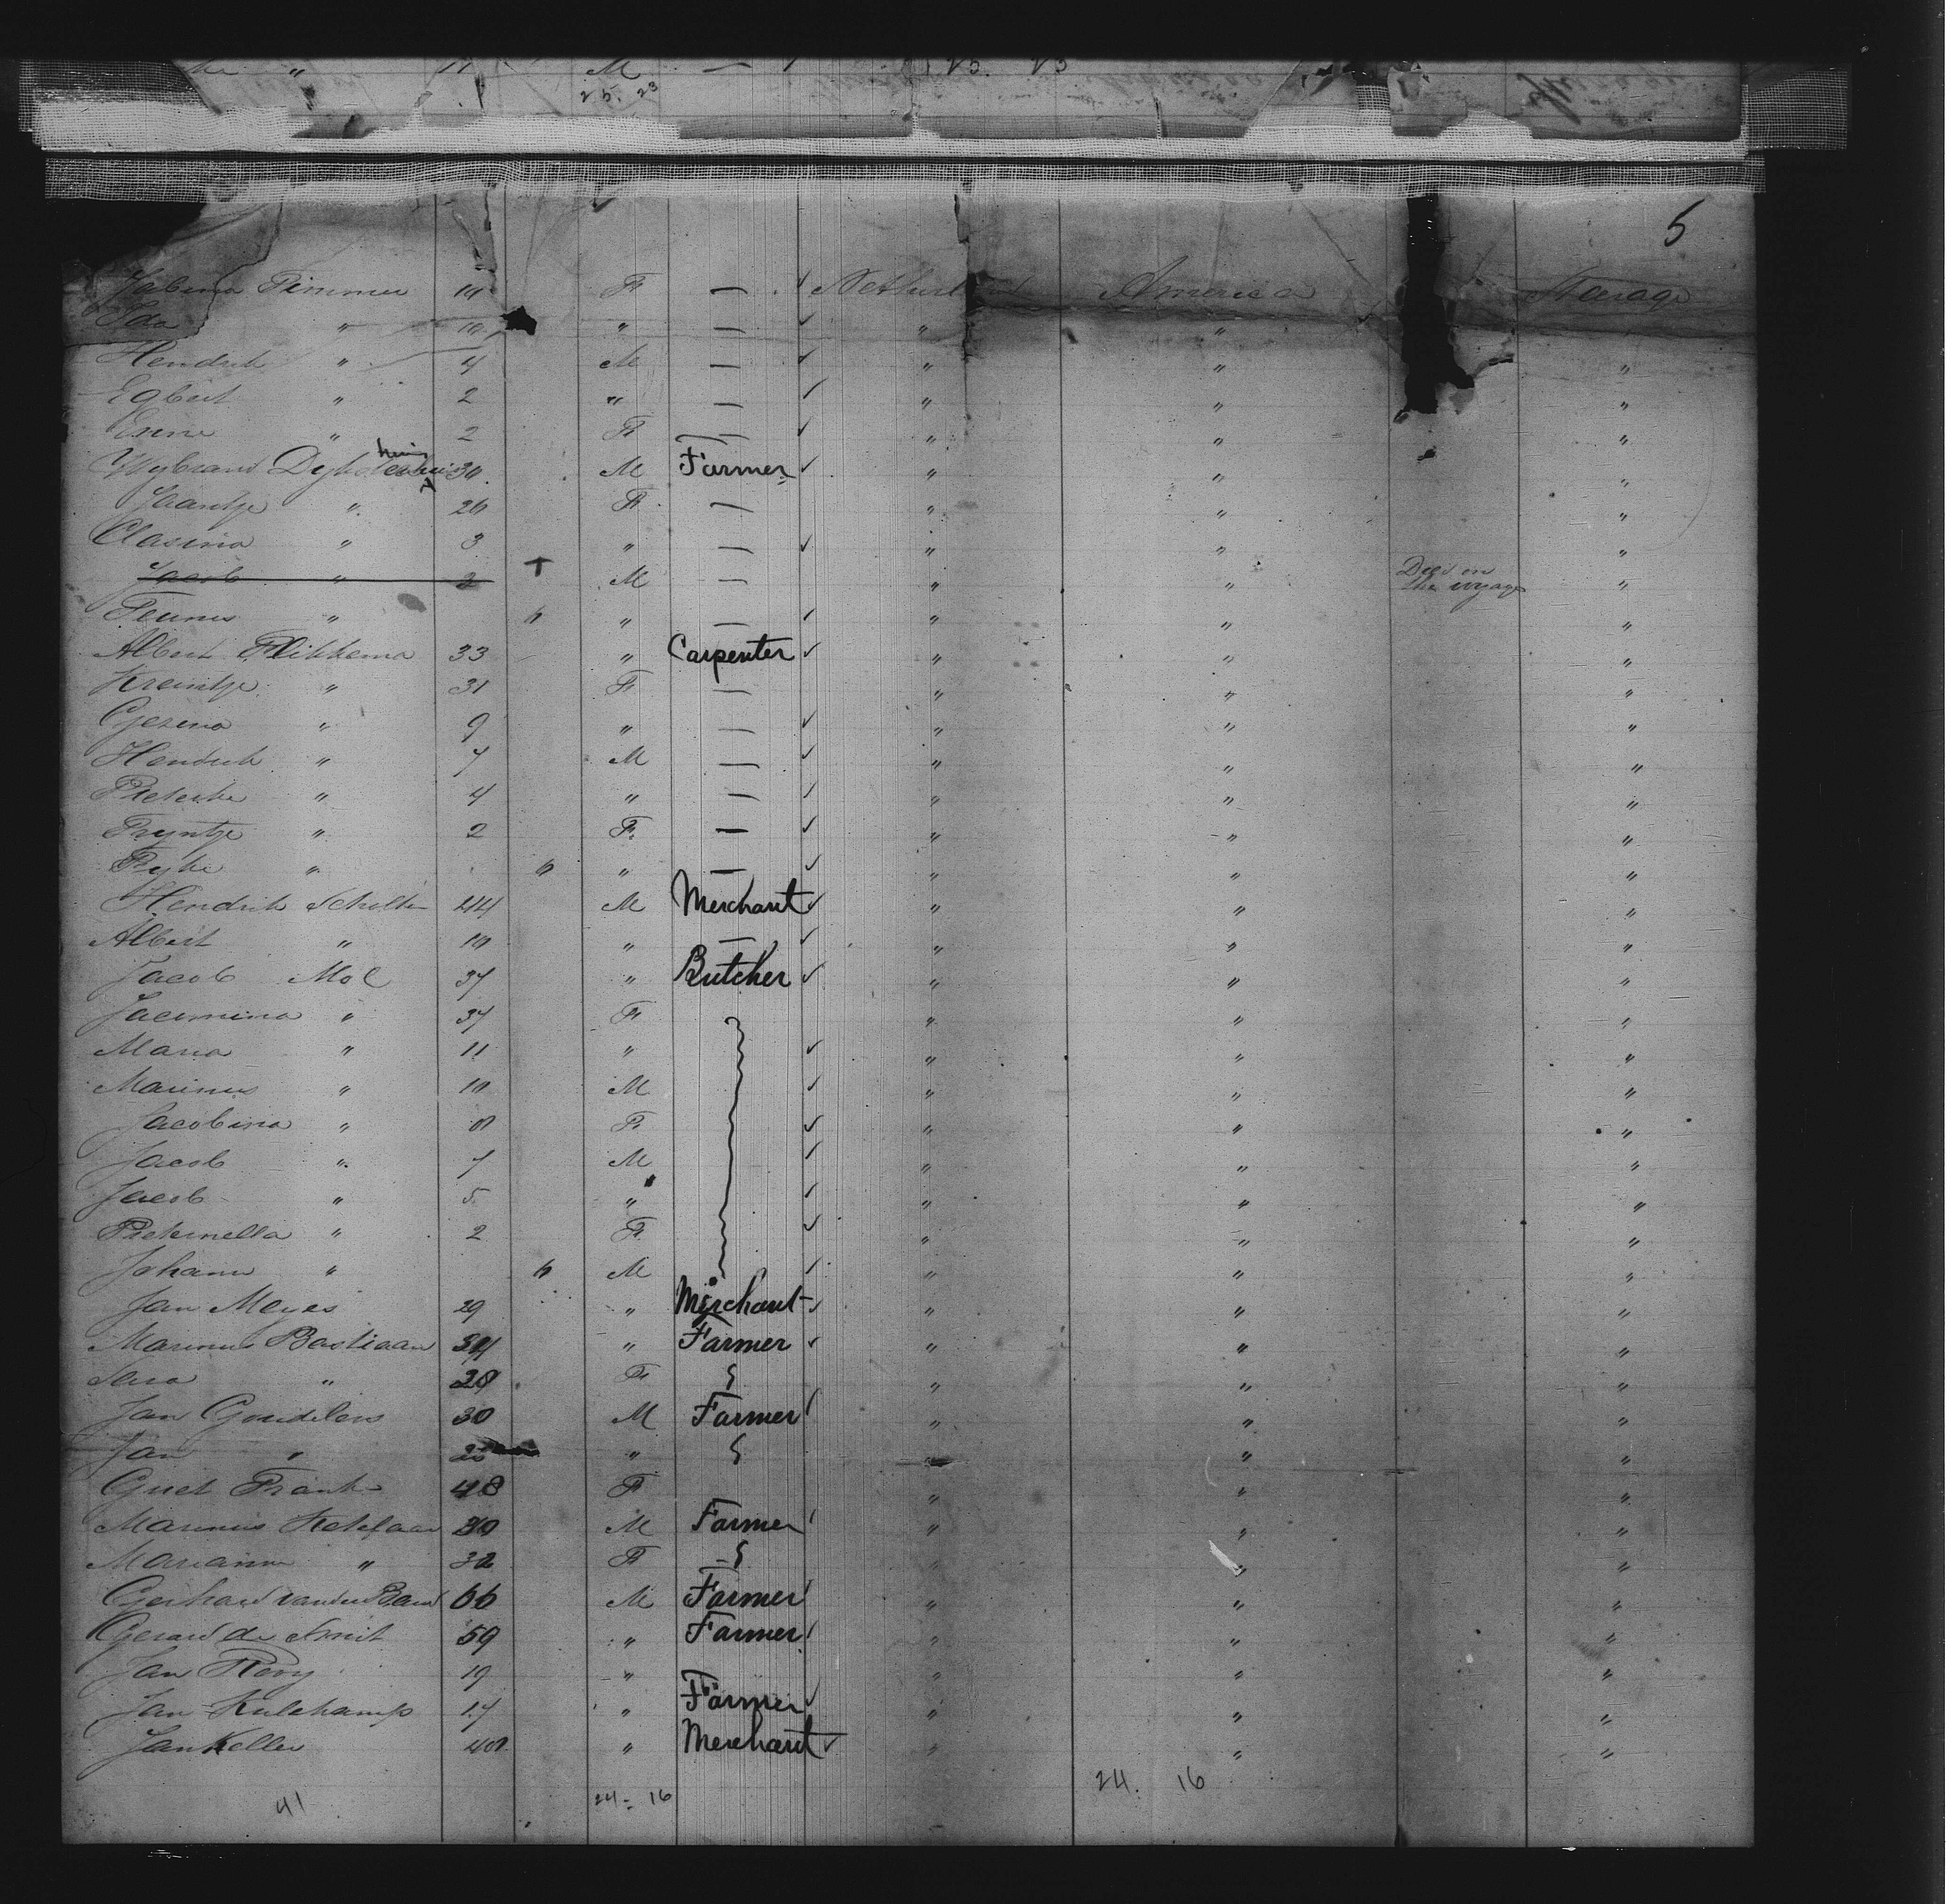 M —
25. 23
5
Timmer F — Netherland America Stearage
Ida " 10 " — " " "
Hendrik " 4 M — " " "
Egbert " 2 " — " " "
2 F — " " "
Wybrand M Farmer " " "
Jaantje " 26 F — " " "
Clasina " 3 " — " " "
Jacob " 2 M — " " Died on the voyage "
Teunis " " — " " "
Albert Flikkema 33 " Carpenter " " "
Kreintje " 31 F — " " "
Gesina " 9 " — " " "
Hendrik " 7 M — " " "
Pieterke " 4 " — " " "
Tryntje " 2 F. — " " "
" " — " " "
Hendrik Scholten 44 M Merchant " " "
Albert " 10 " — " " "
Jacob Mol 37 " Butcher " " "
Jacomina " 37 F " " "
Maria " 11 " " " "
Marinus " 10 M " " "
Jacobina " 8 F " " "
Jacob " 7 M " " "
Jacob " 5 " " " "
Pieternella " 2 F " " "
Johann " M " " "
Jan Meyes 29 " Merchant " " "
Marinus Bastiaan 34 " Farmer " " "
Sara " 28 F " " "
Jan 30 M Farmer " " "
Jan " " " "
Frank 48 F " " "
Marinus M Farmer " " "
" 32 F " " "
Gerhard 66 M Farmer " " "
Gerard de Smit 59 " Farmer " " "
Jan 19 " " " "
Jan 17 " Farmer " " "
Jan Keller 40 " Merchant " " "
41 24 - 16 24. 16